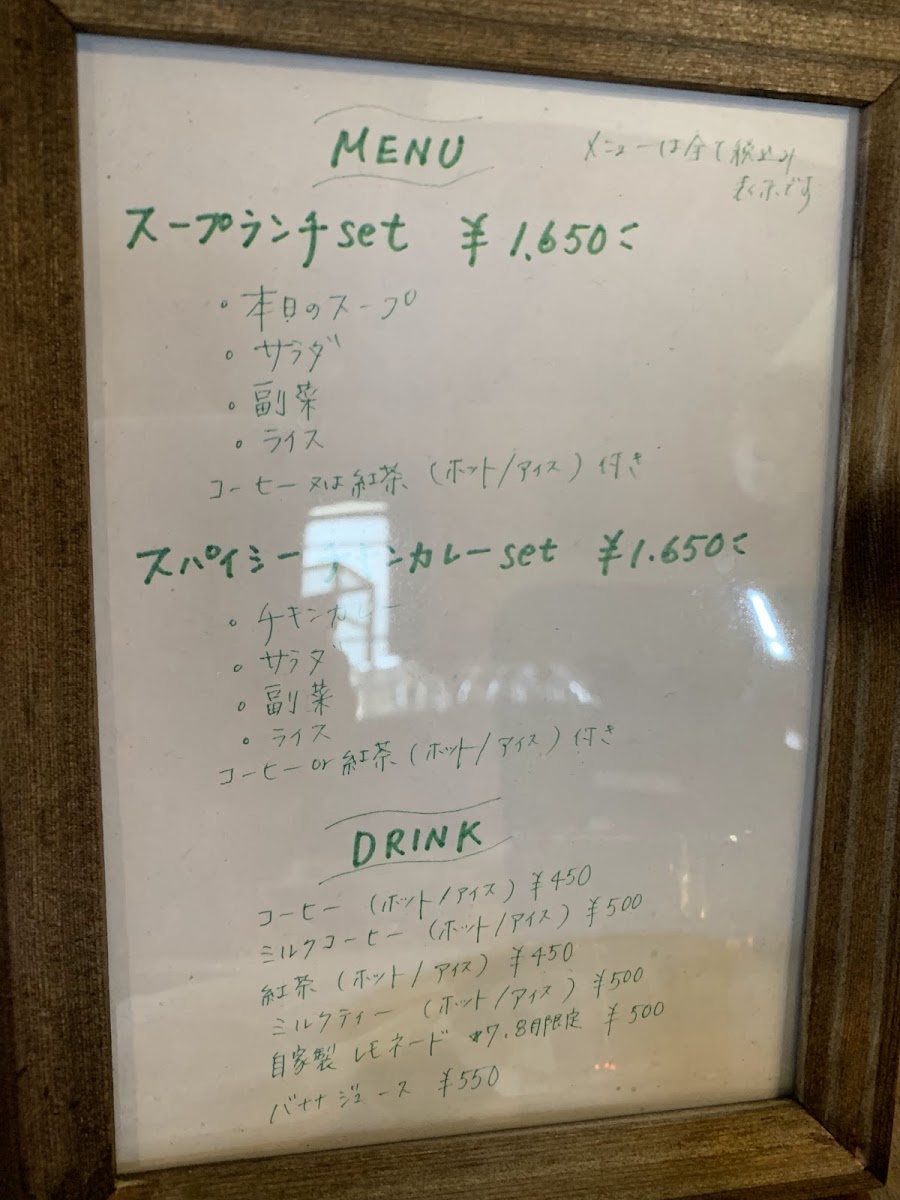 MENU
メニューは全て税込み
表示です
スープランチset ¥1.650<
・本日のスープ
・サラダ
・副菜
・ライス
コーヒー又は紅茶(ホット/アイス)付き
スパイシーチキンカレーset ¥1.650<
・チキンカレー
・サラダ
・副菜
・ライス
コーヒーor紅茶(ホット/アイス)付き
DRINK
コーヒー(ホット/アイス)¥450
ミルクコーヒー(ホット/アイス)¥500
紅茶(ホット/アイス)¥450
ミルクティー(ホット/アイス)¥500
自家製レモネード *7.8月限定 ¥500
バナナジュース ¥550